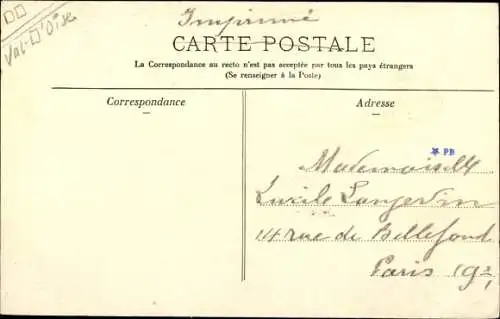 Imprimé
Val-D'Oise
CARTE POSTALE
La Correspondance au recto n'est pas acceptée par tous les pays étrangers
(Se renseigner à la Poste)
Correspondance
Adresse
PB
Mademoiselle
Lucile Langevin
14 rue de Bellefond
Paris 9e